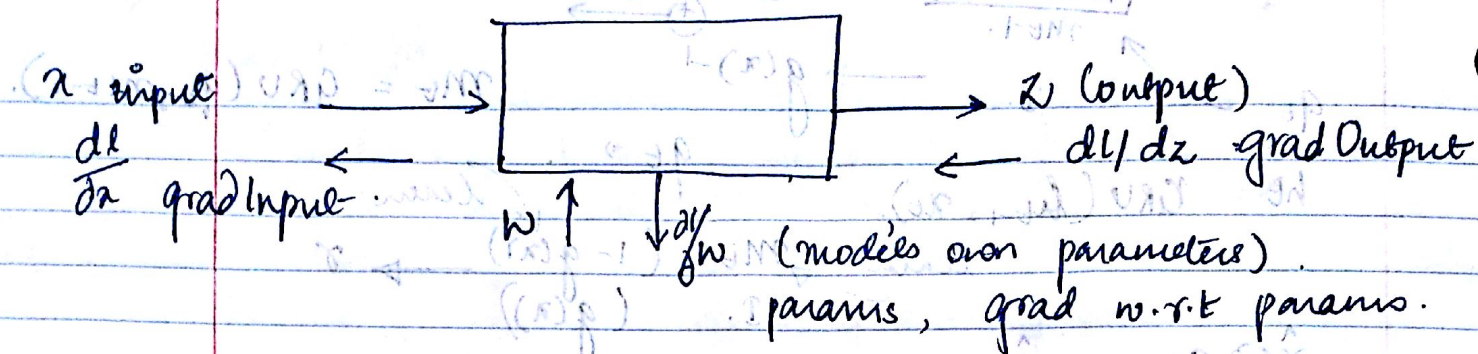 x input
Z (output)
dl/dx gradInput.
dl/dz gradOutput
W
∂l/∂w (models own parameters).
params, grad w.r.t params.